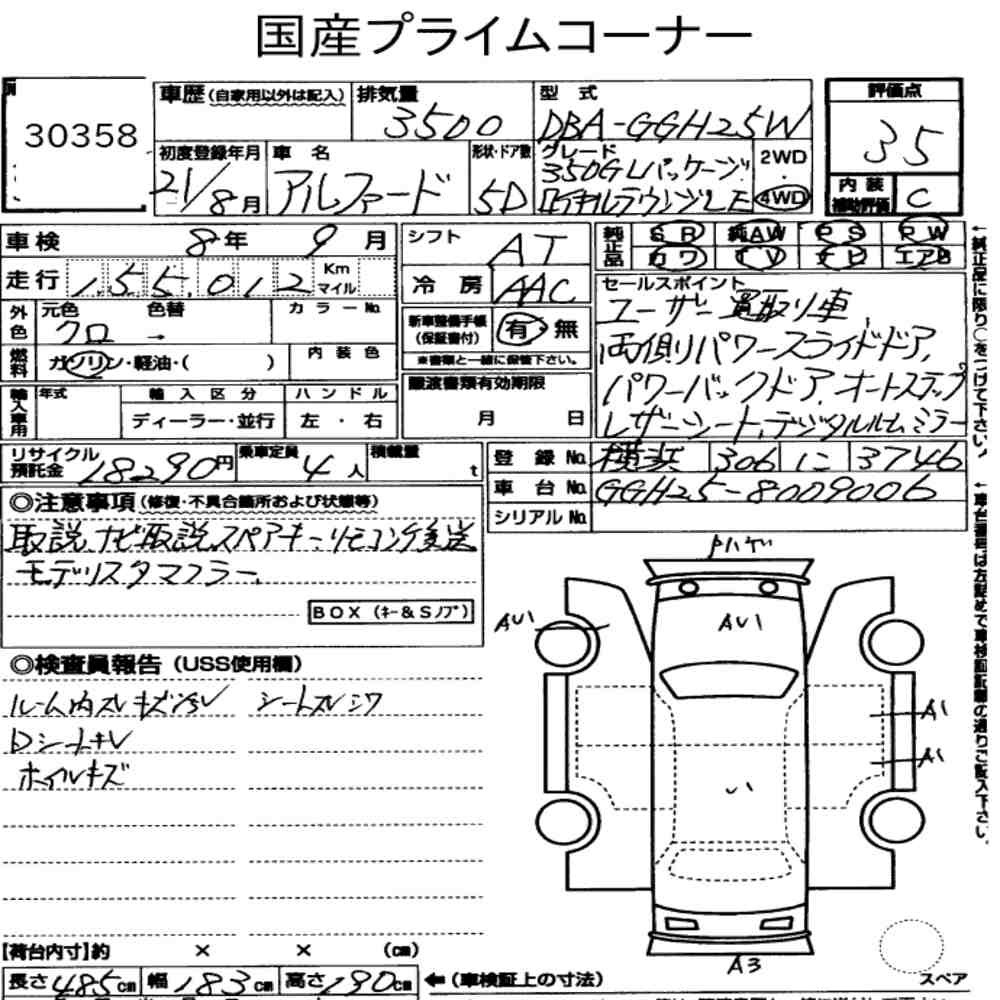 国産プライムコーナー
30358
車歴(自家用以外は記入)
排気量
3500
型式
DBA-GGH25W
評価点
35
初度登録年月
21/8月
車名
アルファード
形状・ドア数
5D
グレード
350G Lパッケージ
ロイヤルラウンジLE
2WD
・
4WD
内装
補助評価
C
車検
8年 9月
シフト
AT
純正品
SR 純AW PS PW
カワ TV ナビ エアB
走行
155,012
Km
マイル
冷房
AAC
セールスポイント
ユーザー買取り車
両側パワースライドドア,
パワーバックドア,オートステップ
レザーシート,デジタルルームミラー
外色
元色
クロ
色替
→
カラーNo.
新車整備手帳
(保証書付)
有・無
※書類と一緒に保管下さい。
燃料
ガソリン・軽油・( )
内装色
譲渡書類有効期限
月 日
輸入車用
年式
輸入区分
ディーラー・並行
ハンドル
左・右
リサイクル
預託金
18290円
乗車定員
4人
積載量
t
登録No.
横浜 306 に 3746
車台No.
GGH25-8009006
シリアルNo.
◎注意事項(修復・不具合箇所および状態等)
取説,ナビ取説,スペアキー,リモコン後送
モデリスタマフラー
BOX(キー&Sノブ)
◎検査員報告(USS使用欄)
ルーム内スレキズ汚レ シートスレシワ
Dシートキレ
ホイルキズ
AU1
AU1
A1
A1
A3
スペア
【荷台内寸】約 × × (cm)
長さ485cm 幅183cm 高さ190cm
←(車検証上の寸法)
←純正品に限り○をつけて下さい。
←車台番号は左詰めで車検証記載の通りご記入下さい。